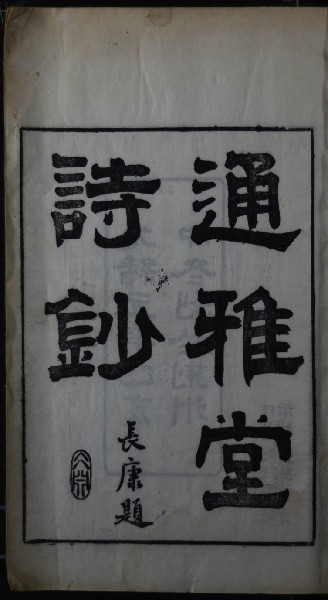 通雅堂
詩鈔
長康題